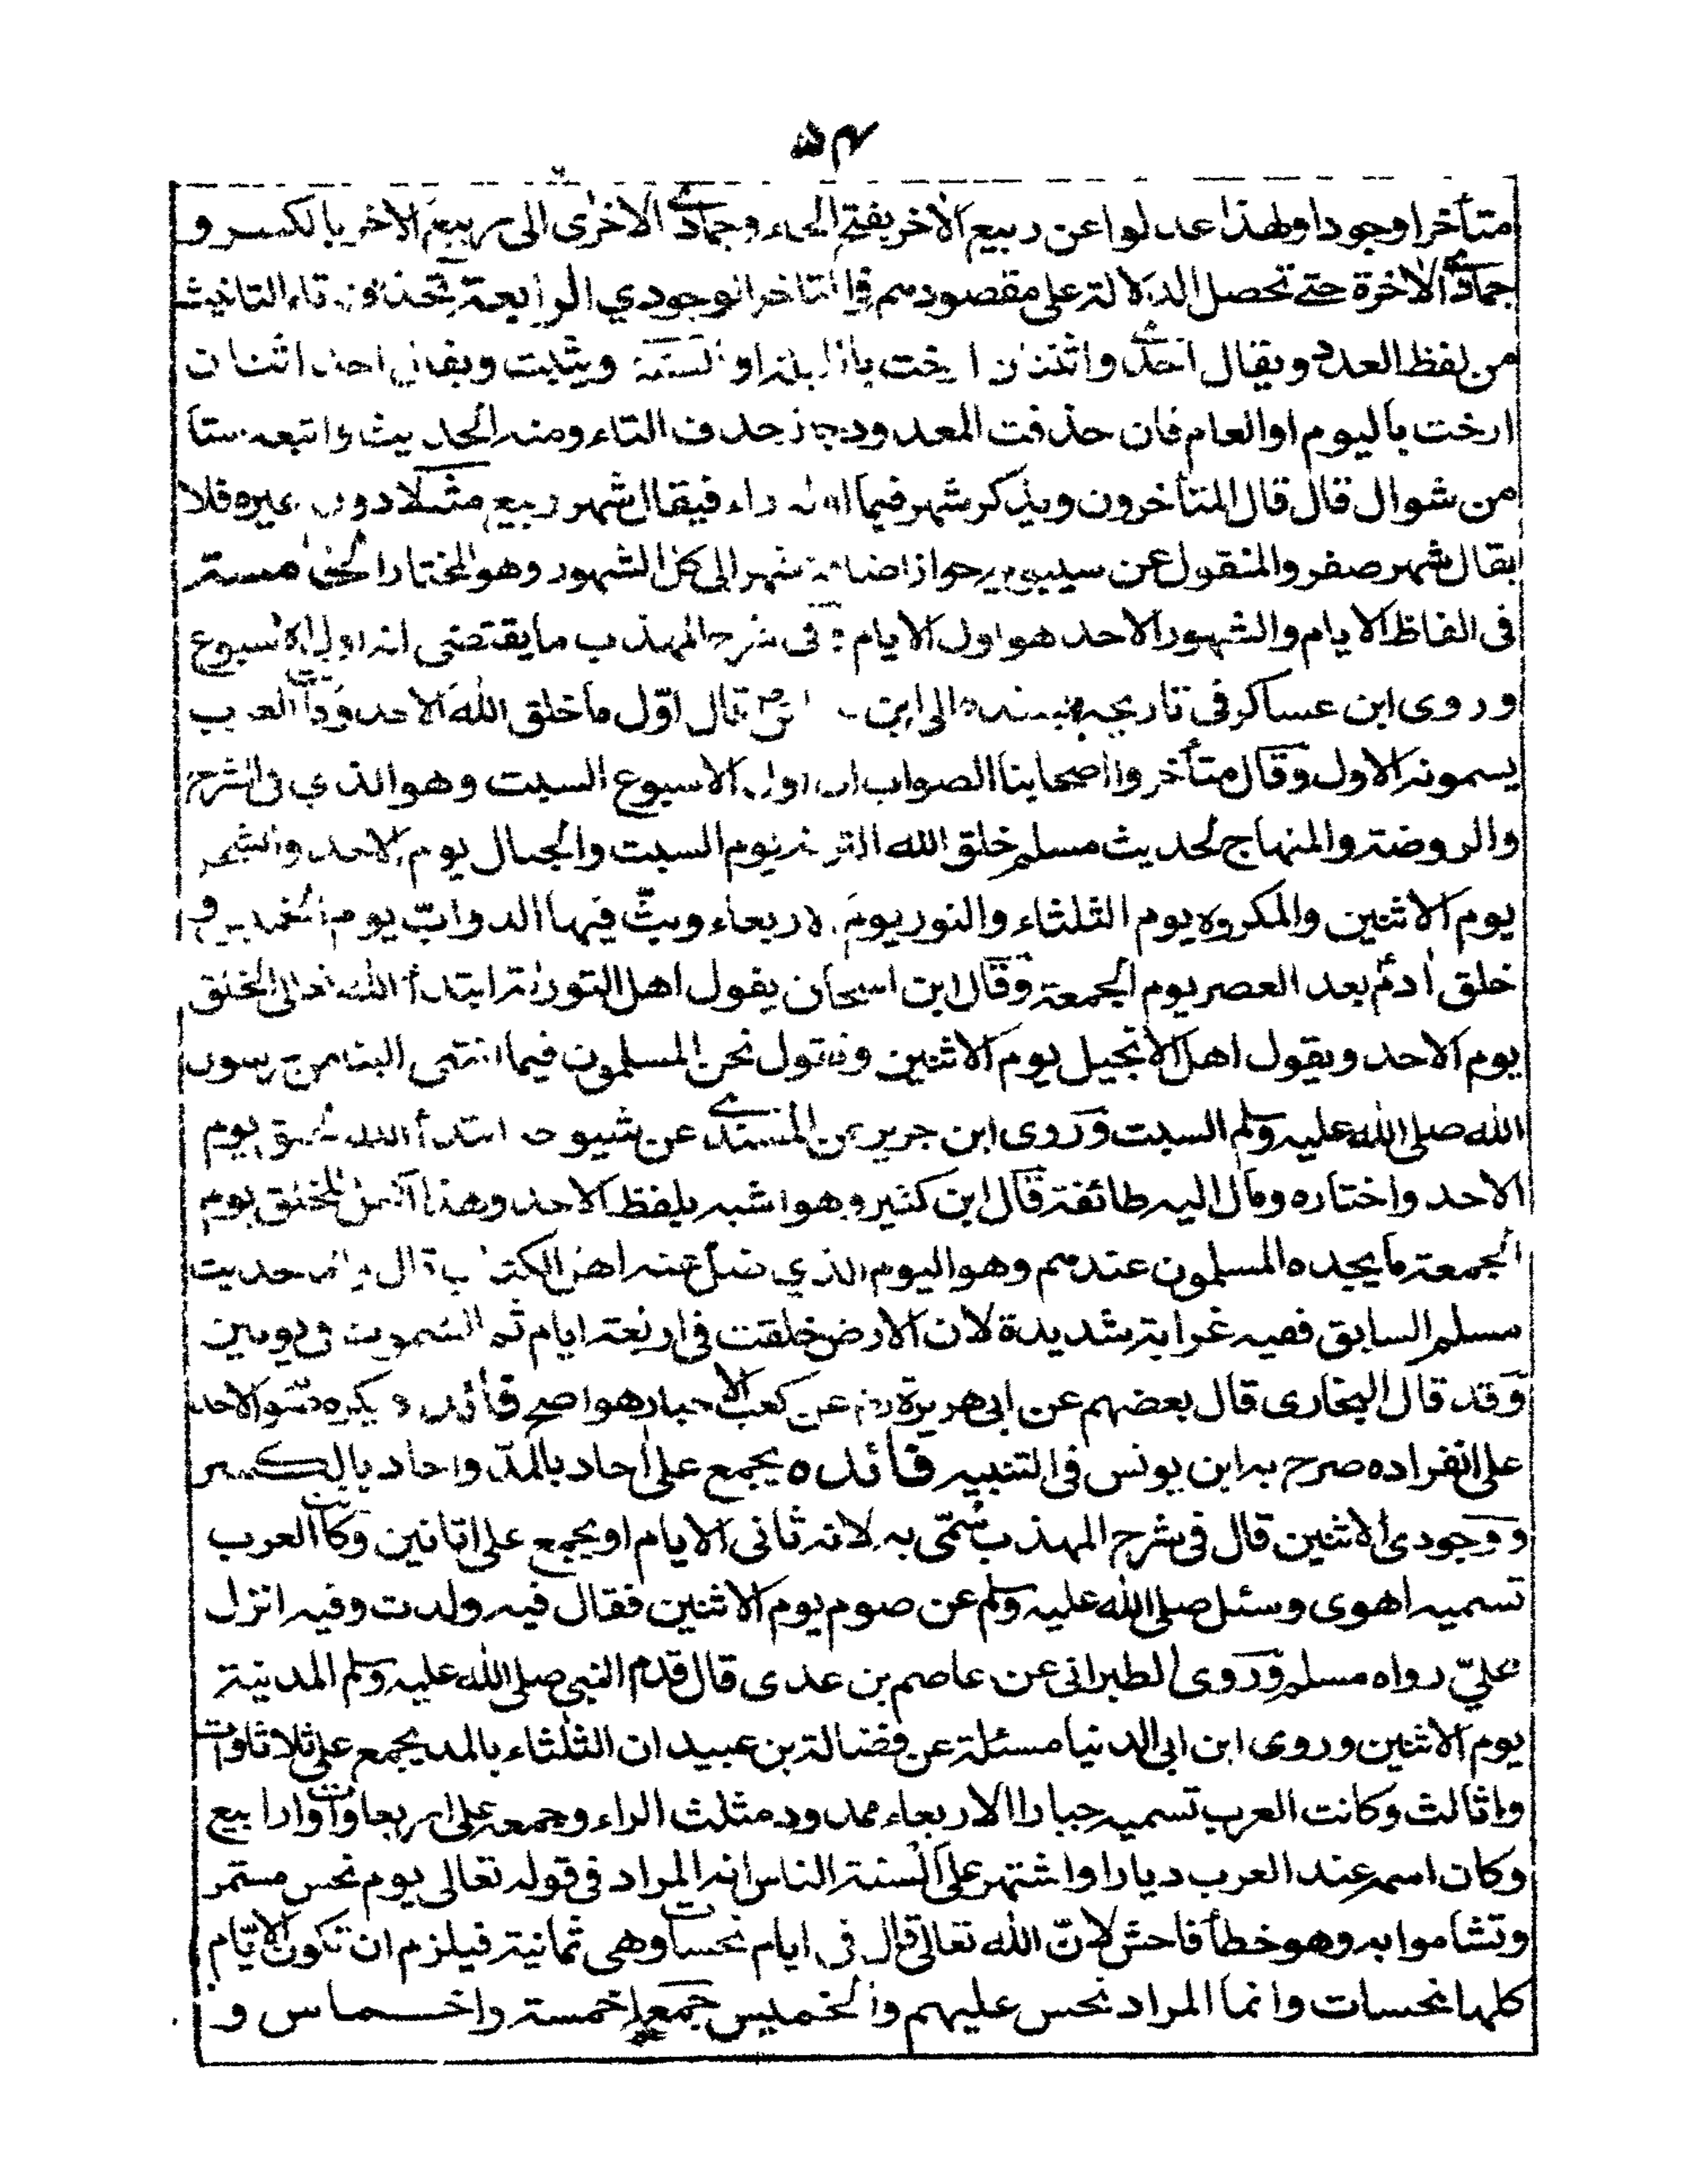 ۵۴
متأخرا وجودا ولهذا عدلوا عن ربيع الآخر بفتح الخاء وجمادى الاخرى الى ربيع الآخر بالكسر و
جمادى الآخرة حتى تحصل الدلالة على مقصودهم في التاخر الوجودي الرابعة تحذف تاء التانيث
من لفظ العدد ويقال احدى واثنتان ارخت بالليلة او السنة ويثبت ويقال احد اثنان
ارخت باليوم او العام فان حذفت المعدود جاز حذف التاء ومنه الحديث واتبعه ستا
من شوال قال قال المتأخرون ويذكر شهر فيما اوله راء فيقال شهر ربيع مثلا دون غيره فلا
يقال شهر صفر والمنقول عن سيبويه جواز اضافة شهر الى كل الشهور وهو المختار الخ
فى الفاظ الايام والشهور الاحد هو اول الايام فى شرح المهذب ما يقتضى انه اول الاسبوع
وروى ابن عساكر فى تاريخه بسنده الى ابن قال اوّل ما خلق الله الاحد وكانت العرب
يسمونه الاول وقال متأخروا اصحابنا الصواب ان اول الاسبوع السبت وهو الذي فى الشرح
والروضة والمنهاج لحديث مسلم خلق الله التربة يوم السبت والجبال يوم الاحد والشجر
يوم الاثنين والمكروه يوم الثلثاء والنور يوم الاربعاء وبثّ فيها الدوابّ يوم الخميس و
خلق آدم بعد العصر يوم الجمعة وقال ابن اسحاق يقول اهل التوراة ابتدأ الله تعالى الخلق
يوم الاحد ويقول اهل الانجيل يوم الاثنين ونقول نحن المسلمون فيما انتهى الينا من رسول
الله صلى الله عليه وسلم السبت وروى ابن جرير عن السدى عن شيوخه ابتدأ الله الخلق يوم
الاحد واختاره ومال اليه طائفة قال ابن كثير وهو اشبه بلفظ الاحد ولهذا اكمل الخلق يوم
الجمعة عندهم وهو اليوم الذي ضل عنه اهل الكتاب قال واما حديث
مسلم السابق ففيه غرابة شديدة لان الارض خلقت فى اربعة ايام ثم السموت فى يومين
وقد قال البخارى قال بعضهم عن ابى هريرة رض عن كعب الاحبار هو اصح فائدة يكره صوم الاحد
على انفراده صرح به ابن يونس فى التنبيه فائده يجمع على آحاد بالمدّ واحاد بالكسر
ووجودى الاثنين قال فى شرح المهذب سُمّى به لانه ثانى الايام ويجمع على اثانين وكانت العرب
تسميه اهوى وسئل صلى الله عليه وسلم عن صوم يوم الاثنين فقال فيه ولدت وفيه انزل
عليّ رواه مسلم وروى الطبرانى عن عاصم بن عدى قال قدم النبى صلى الله عليه وسلم المدينة
يوم الاثنين وروى ابن ابى الدنيا مسئلة عن فضالة بن عبيد ان الثلثاء بالمد يجمع على ثلاثاوات
واثالث وكانت العرب تسميه جبارا الاربعاء ممدود مثلث الراء وجمعه على اربعاوات وارابيع
وكان اسمه عند العرب ديارا واشتهر على السنة الناس انه المراد فى قوله تعالى يوم نحس مستمر
وتشاموا به وهو خطأ فاحش لانّ الله تعالى قال فى ايام نحسات وهى ثمانية فيلزم ان تكون الايّام
كلها نحسات وانما المراد نحس عليهم والخميس جمعه اخمسة واخماس و